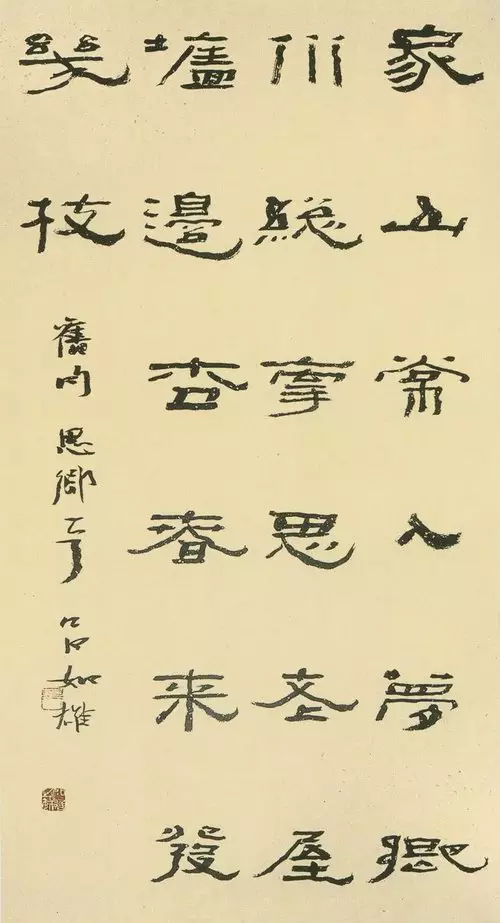 家山常入夢鄉
川總牽思老屋
壚邊杏春來發
幾枝
舊句思鄉 呂如雄